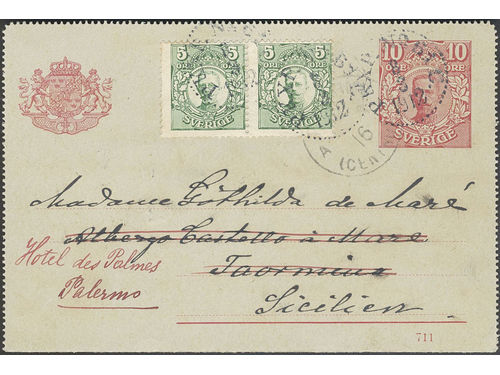 5 ÖRE 5 ÖRE
SVERIGE
5 ÖRE 5 ÖRE
SVERIGE
10 ÖRE 10 ÖRE
SVERIGE
(CEN
16
Madame Göthilda de Maré
Albergo Castello à Mare
Hotel des Palmes
Taormina
Palermo
Sicilien
711